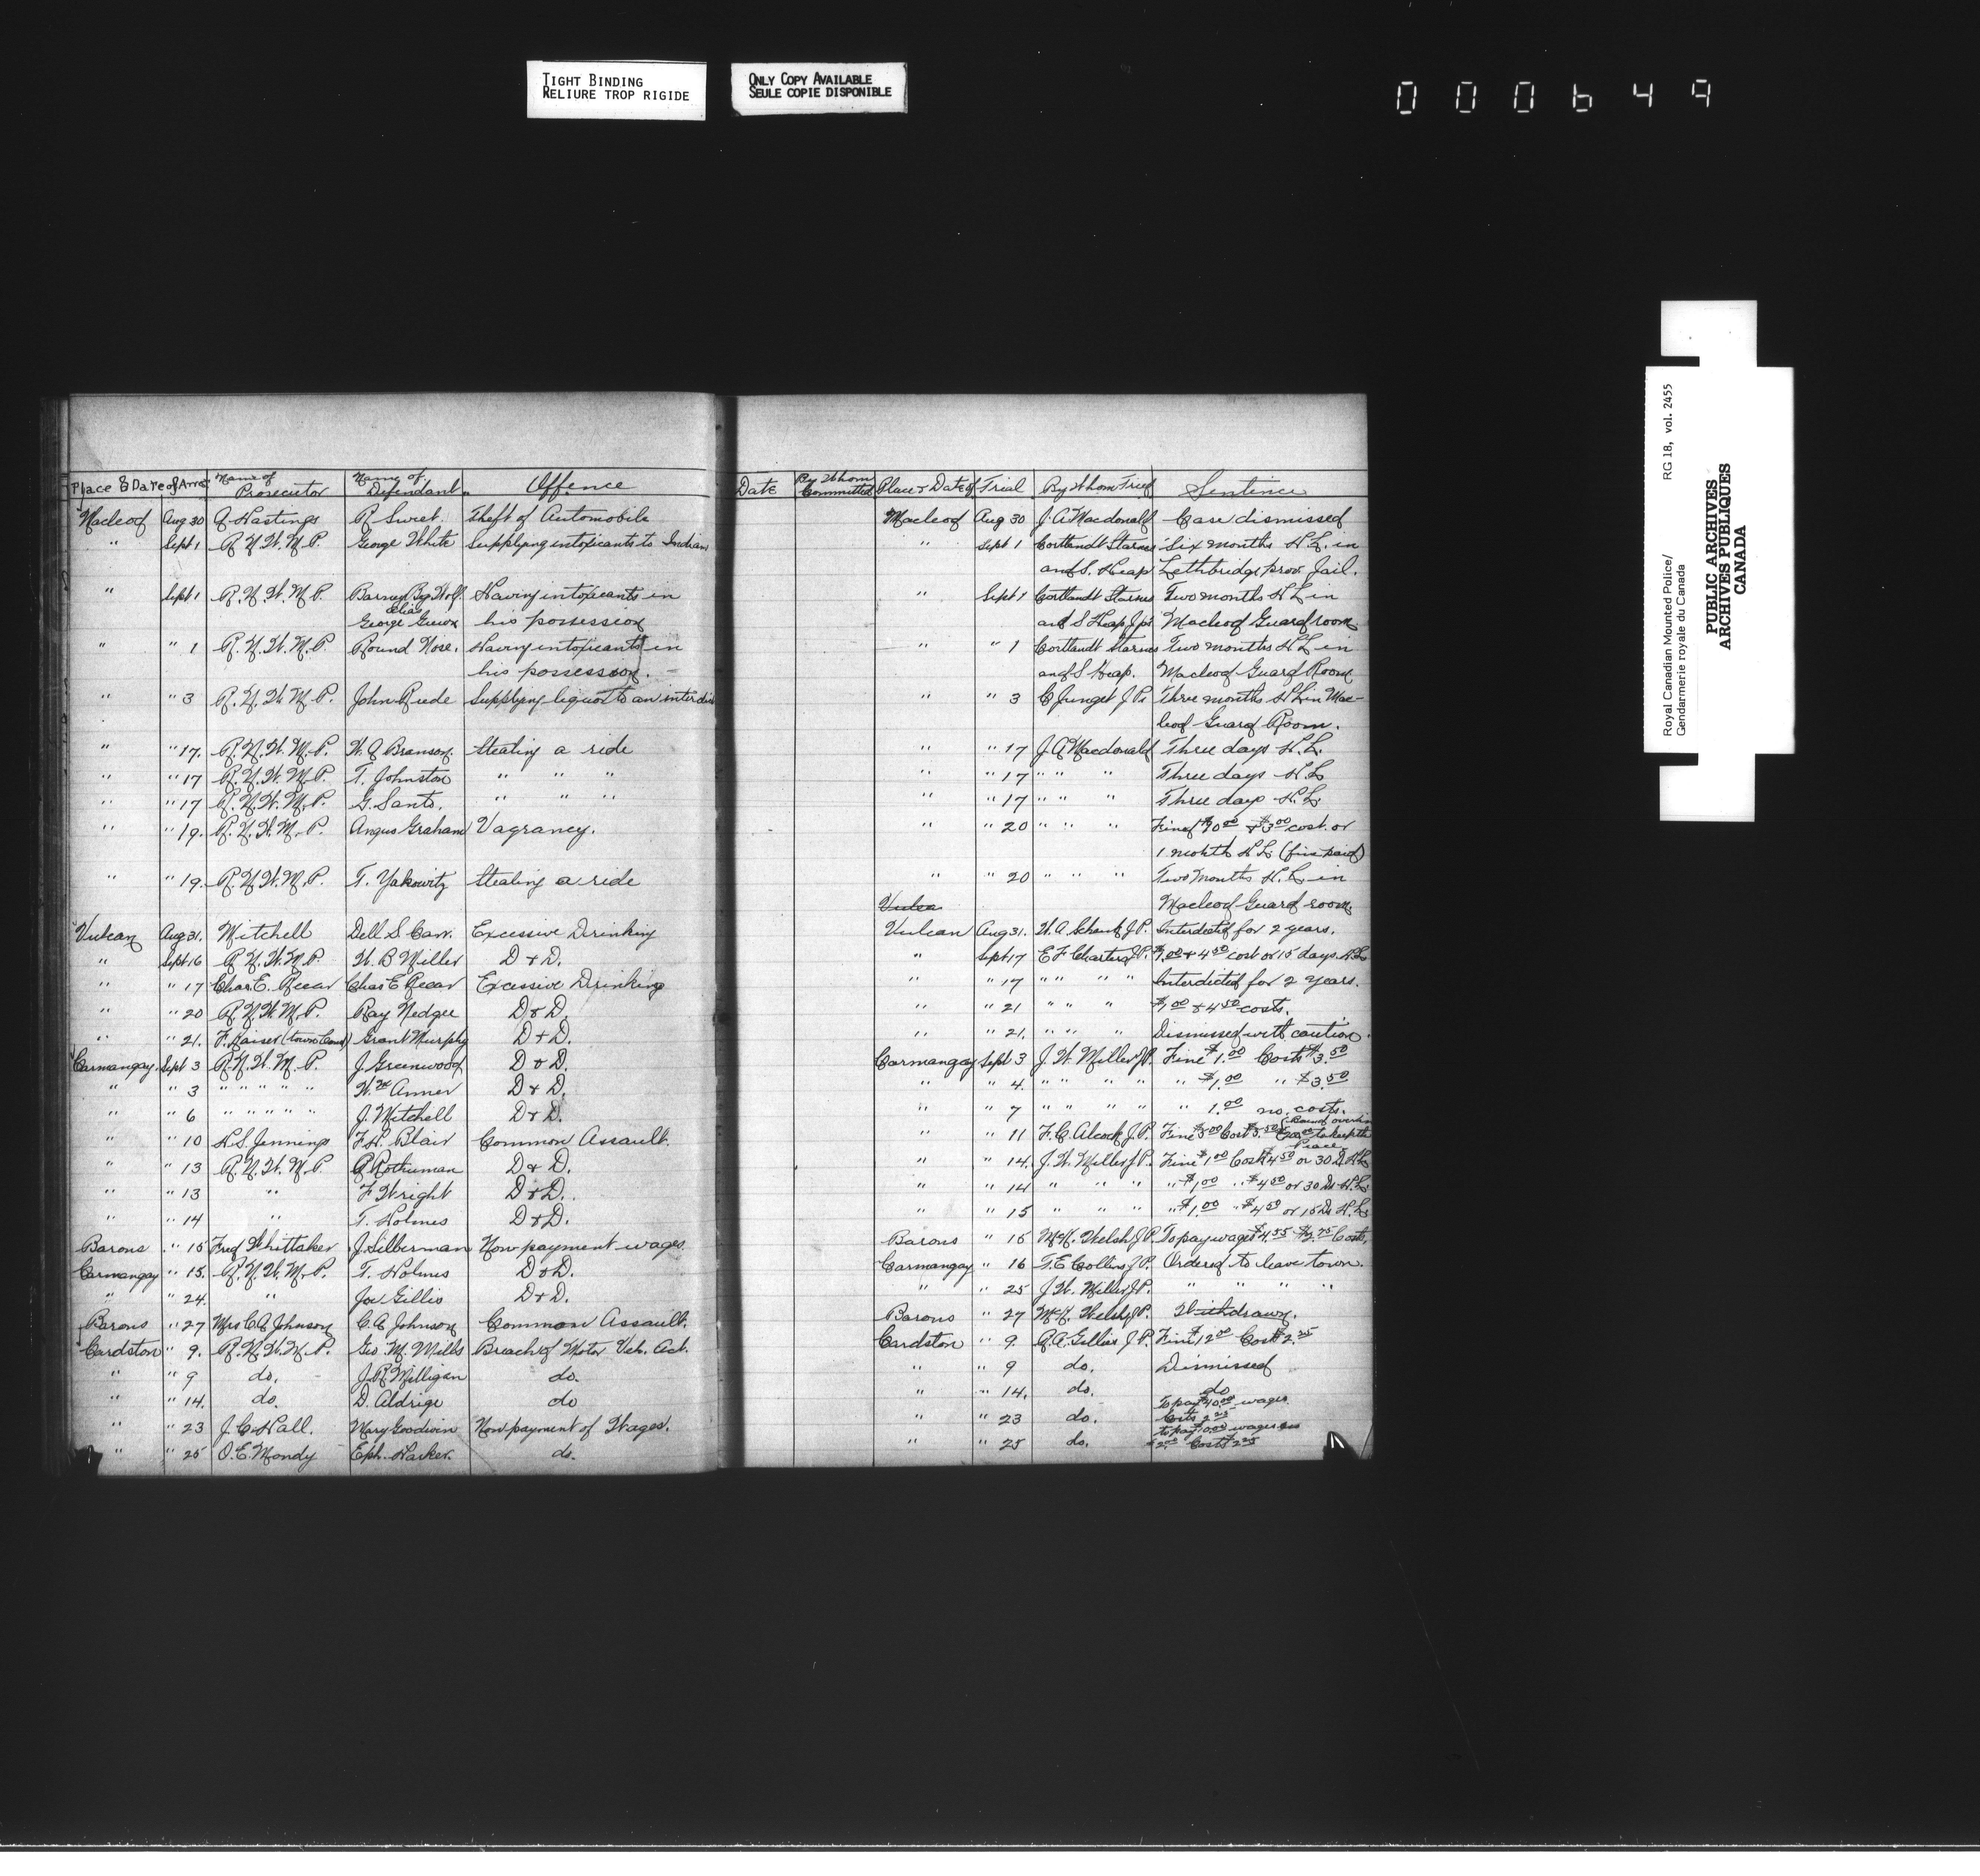 TIGHT BINDING
RELIURE TROP RIGIDE
ONLY COPY AVAILABLE
SEULE COPIE DISPONIBLE
000649
Royal Canadian Mounted Police/ RG 18, vol. 2455
Gendarmerie royale du Canada
PUBLIC ARCHIVES
ARCHIVES PUBLIQUES
CANADA
Place & Date of Arre Name of Prosecutor Name of Defendant Offence Date By Whom Committed Place & Date of Trial By Whom Tried Sentence
Macleod Aug 30 Hastings R Sweet. Theft of Automobile Macleod Aug 30 J. A Macdonald Case dismissed
" Sept 1 R N W M P. George White Supplying intoxicants to Indians " Sept 1 Cortlandt Starnes Six months H L. in
and S. Heap Lethbridge prov. Jail.
" Sept 1 R. N. W. M P. Barney Big Wolf Having intoxicants in " Sept 1 Cortlandt Starnes Two months H L in
alias
George his possession and S Heap J ps Macleod Guard room
" " 1 R. N. W. M. P. Round Nose. Having intoxicants in " " 1 Cortlandt Starnes Two months H L in
his possession. and S Heap. Macleod Guard Room
" " 3 R. N. W. M. P. John Rude Supplying liquor to an interdict " " 3 C Junget J P. Three months H L in Mac-
leod Guard Room.
" " 17. R. N. W. M. P. Branson. Stealing a ride " " 17 J. A Macdonald Three days H. L.
" " 17 R. N. W. M. P. T. Johnston " " " " " 17 " " " Three days H. L
" " 17 R. N. W. M. P. G. Santo. " " " " " 17 " " " Three days H. L.
" " 19. R. N. W. M. P. Angus Graham Vagrancy. " " 20 " " " Fine & $3.00 cost. or
1 month H L (fine paid)
" " 19. R. N. W. M. P. T. Yakowitz Stealing a ride " " 20 " " " Two Months H. L in
Macleod Guard room
Vulcan Aug 31. Mitchell Dell S. Carr. Excessive Drinking Vulcan Aug 31. J. P. Interdicted for 2 years.
" Sept 16 R. N. W. M. P. W. B Miller D & D. " Sept 17 E F Charters J. P. $1.00 & 4.50 cost or 15 days H L
" " 17 Chas. E. Chas E Excessive Drinking " " 17 " " " " Interdicted for 2 years.
" " 20 R. N. W. M. P. Ray D & D. " " 21 " " " $1.00 & 4.50 costs.
" " 21. F. Kaiser (town Const) Grant Murphy D & D. " " 21. " " " Dismissed with caution.
Carmangay. Sept 3 R. N. W. M. P. J. Greenwood D & D. Carmangay Sept 3 J. W. Miller J. P. Fine $1.00 Costs $3.50
" " 3 " " " " " Wm Anner D & D. " " 4. " " " " " $1.00 " $3.50
" " 6 " " " " " J. Mitchell D & D. " " 7 " " " " " 1.00 no costs.
" " 10 H. S. Jennings F. H. Blair Common Assault. " " 11 F. C. Alcock J. P. Fine $5.00 Cost to keep the
Peace
" " 13 R. N. W. M. P Rothuman D & D. " " 14. J. W. Miller J. P. Fine $1.00 Cost $4.50 or 30 D. H L
" " 13 " F Wright D & D. " " 14 " " " " $1.00 " $4.50 or 30 Ds H. L.
" " 14 " T. Holmes D & D. " " 15 " " " " $1.00 " $4.50 or 15 Ds H. L.
Barons " 15 Fred Whittaker J. Silberman Non payment wages. Barons " 15 Welsh J. P. To pay wages Costs.
Carmangay " 15. R. N. W. M. P. T. Holmes D & D. Carmangay " 16 T. E Collins J. P. Ordered to leave town.
" " 24. " Joe Gillis D & D. " " 25 J. W. Miller J. P. " " " "
Barons " 27 Mrs C. A Johnson C. A Johnson Common Assault. Barons " 27 Welsh J. P. Withdrawn.
Cardston " 9. R. N. W. M. P. Geo. M. Mills Breach of Motor Veh. Act. Cardston " 9. Gillies J. P. Fine Cost $2.25
" " 9 do. J. R. Milligan do. " " 9 do. Dismissed
" " 14. do. D. Aldrige do " " 14. do. do
" " 23 J. C. Hall. Mary Goodwin Non payment of Wages. " " 23 do. To pay $40.00 wages
Costs 2.25
" " 25 O. E. Mondy Eph. Harker. do. " " 25 do. to pay wages
Costs $2.25